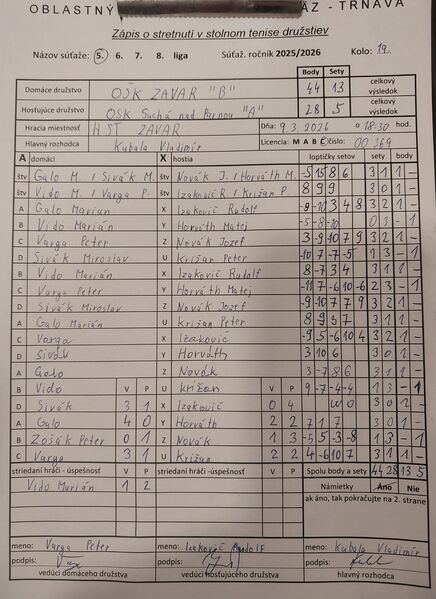 OBLASTNÝ ÄZ - TRNAVA
Zápis o stretnutí v stolnom tenise družstiev
Názov súťaže: 5. 6. 7. 8. liga Súťaž. ročník 2025/2026 Kolo: 19.
Body Sety
Domáce družstvo OŠK ZAVAR "B" 44 13 celkový výsledok
Hosťujúce družstvo OSK Suchá nad Parnou "A" 28 5 celkový výsledok
Hracia miestnosť HST ZAVAR Dňa: 9.3.2026 o 18.30 hod.
Hlavný rozhodca Kubala Vladimír Licencia: M A B C číslo: 00369
A domáci X hostia loptičky setov sety body
štv Galo M. / Sivák M. štv Novák J. / Horváth M. -5 15 8 6 3 1 1 -
štv Vido M. / Varga P. štv Izakovič R. / Križan P. 8 9 9 3 0 1 -
A Galo Marian X Izakovič Rudolf -9 -10 3 4 8 3 2 1 -
B Vido Marián Y Horváth Matej -5 -8 -10 0 3 - 1
C Varga Peter Z Novák Jozef 3 -9 -10 7 9 3 2 1 -
D Sivák Miroslav U Križan Peter -10 7 -7 -5 1 3 - 1
B Vido Marián X Izakovič Rudolf 8 -7 3 4 3 1 1 -
C Varga Peter Y Horváth Matej -11 7 -6 10 -6 2 3 - 1
D Sivák Miroslav Z Novák Jozef -9 -10 7 7 9 3 2 1 -
A Galo Marián U Križan Peter 8 9 3 1 1 -
C Varga X Izakovič -9 5 -6 10 4 3 2 1 -
D Sivák Y Horváth 3 10 6 3 0 1 -
A Galo Z Novák 3 -7 8 6 3 1 1 -
B Vido V P U Križan V P 9 -7 -4 -4 1 3 - 1
D Sivák 3 1 X Izakovič 0 4 WO 3 0 1 -
A Galo 4 0 Y Horváth 2 2 7 1 7 3 0 1 -
B Zošák Peter 0 1 Z Novák 1 3 -5 5 -3 -8 1 3 - 1
C Varga 3 1 U Križan 2 2 4 -6 10 7 3 1 1 -
striedaní hráči - úspešnosť V P striedaní hráči - úspešnosť V P Spolu body a sety 44 28 13 5
Vido Marián 1 2 Námietky Áno Nie
ak áno, tak pokračujte na 2. strane
meno: Varga Peter meno: Izakovič Rudolf meno: Kubala Vladimír
podpis: podpis: podpis:
vedúci domáceho družstva vedúci hosťujúceho družstva hlavný rozhodca